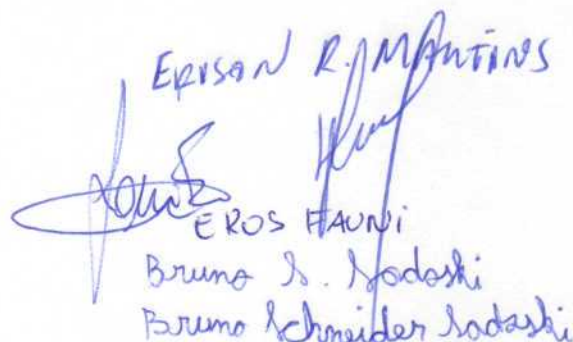 ERISON R. MARTINS
EROS FAUNI
Bruno S. Sadoski
Bruno Schneider Sadoski